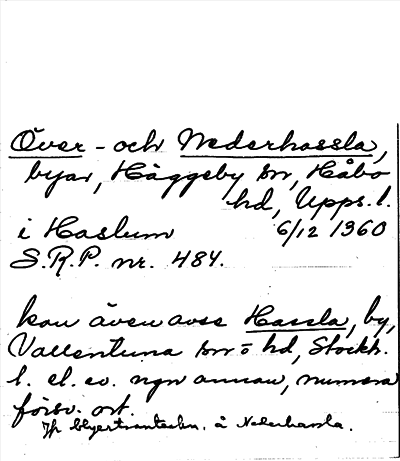 Över- och Nederhassla,
byar, Häggeby sn, Håbo
hd, Upps. l.
i Haslum 6/12 1360
S.R.P. nr. 484.
kan även avse Hassla, by,
Vallentuna sn o hd, Stockh.
l. el. ev. ngn annan, numera
försv. ort.
Jfr blyertsanteckn. å Nederhassla.